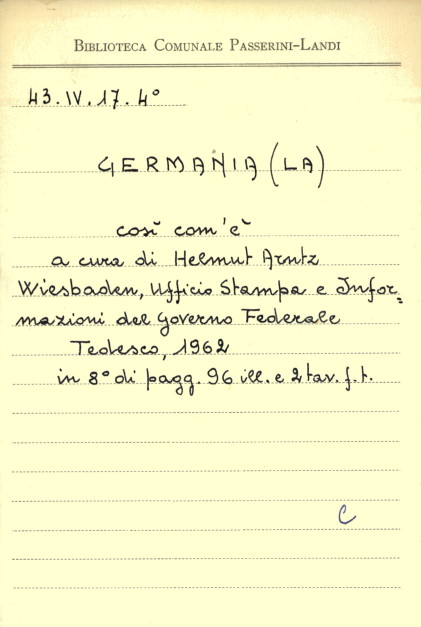 BIBLIOTECA COMUNALE PASSERINI-LANDI
43.IV.17.4°
GERMANIA (LA)
così com'è
a cura di Helmut Arntz
Wiesbaden, Ufficio Stampa e Infor=
mazioni del Governo Federale
Tedesco, 1962
in 8° di pagg. 96 ill. e 2 tav. f.t.
C